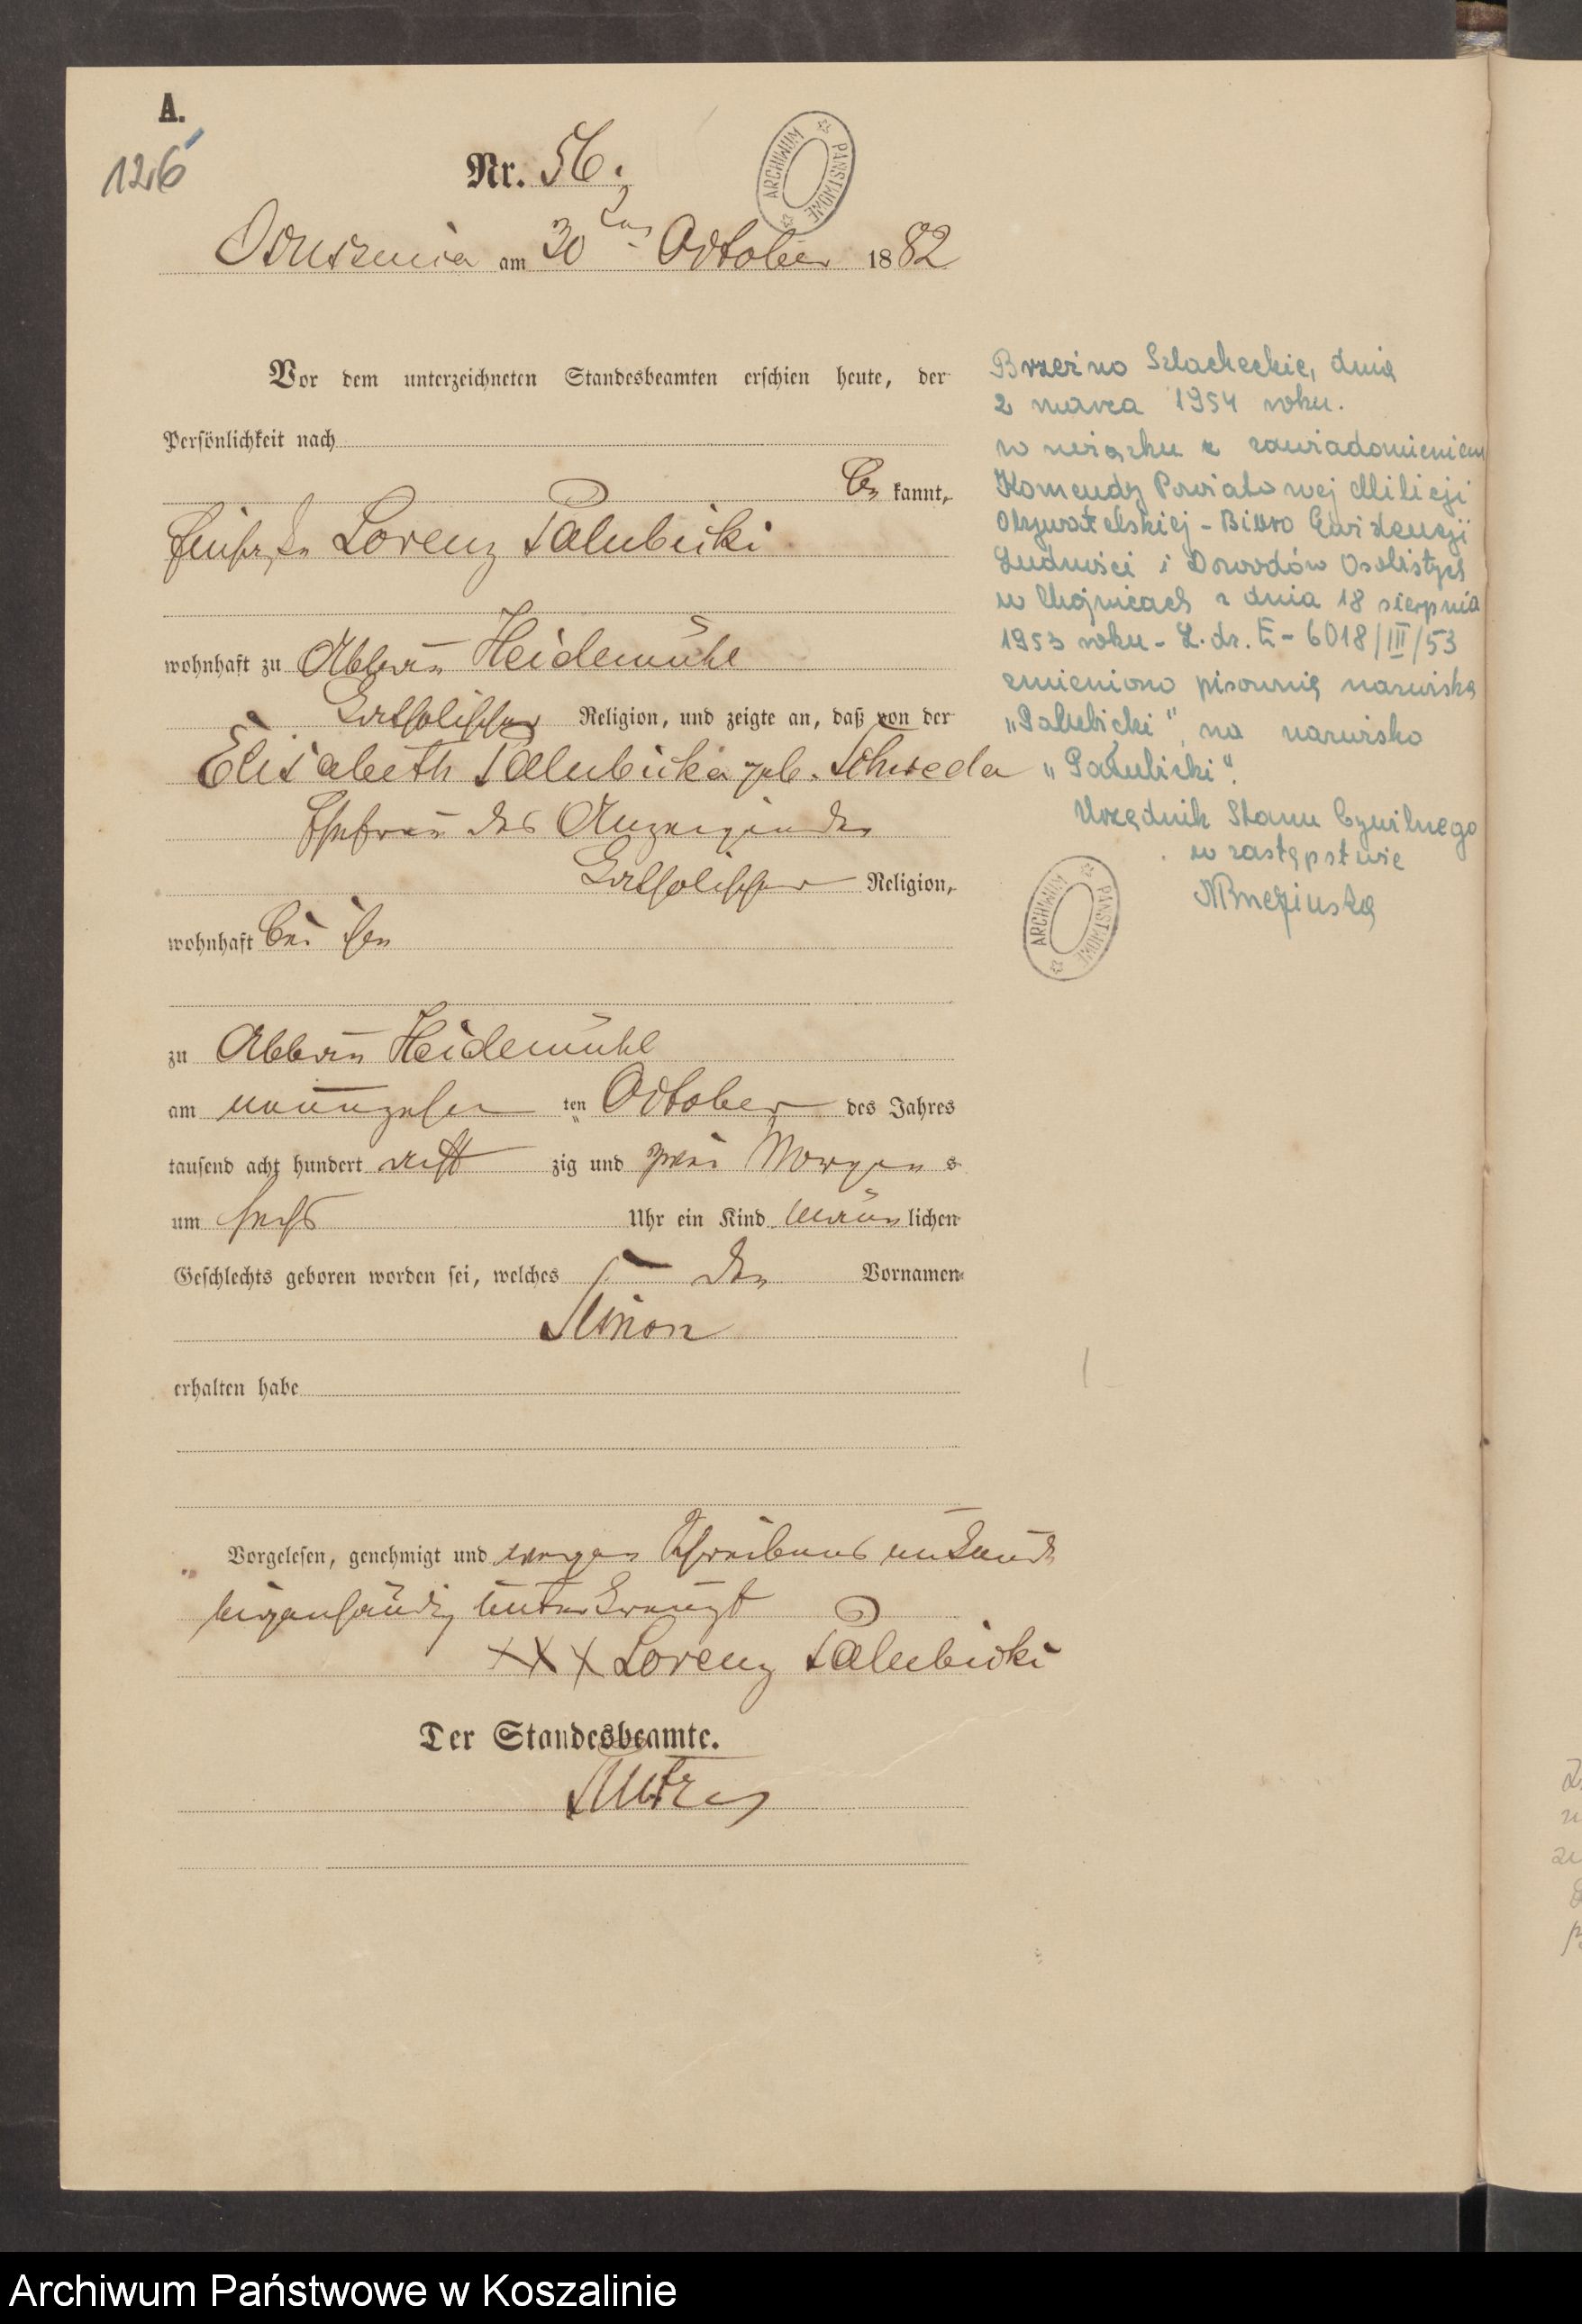 A.
126
Nr. 56.
ARCHIWUM PAŃSTWOWE
am 30ten October 1882
Vor dem unterzeichneten Standesbeamten erschien heute, der
Persönlichkeit nach
be kannt,
Lorenz Palubicki
wohnhaft zu Abbau Heidemühl
katholischer Religion, und zeigte an, daß von der
Elisabeth Palubicka geb. Schweda
Ehefrau des Anzeigenden
katholischer Religion,
wohnhaft bei ihm
zu Abbau Heidemühl
am neunzehn ten October des Jahres
tausend acht hundert acht zig und zwei Morgens
um sechs Uhr ein Kind männlichen
Geschlechts geboren worden sei, welches den Vornamen
Simon
erhalten habe
Vorgelesen, genehmigt und wegen Schreibens unkunde
eigenhändig unterkreuzt
XXX Lorenz Palubicki
Der Standesbeamte.
Brzeźno Szlacheckie, dnia
2 marca 1954 roku.
w związku z zawiadomieniem
Komendy Powiatowej Milicji
Obywatelskiej - Biuro Ewidencji
Ludności i Dowodów Osobistych
w Chojnicach z dnia 18 sierpnia
1953 roku - L.dz. E - 6018/III/53
zmieniono pisownię nazwiska
"Palubicki" na nazwisko
"Pałubicki".
Urzędnik Stanu Cywilnego
w zastępstwie
ARCHIWUM PAŃSTWOWE
Archiwum Państwowe w Koszalinie